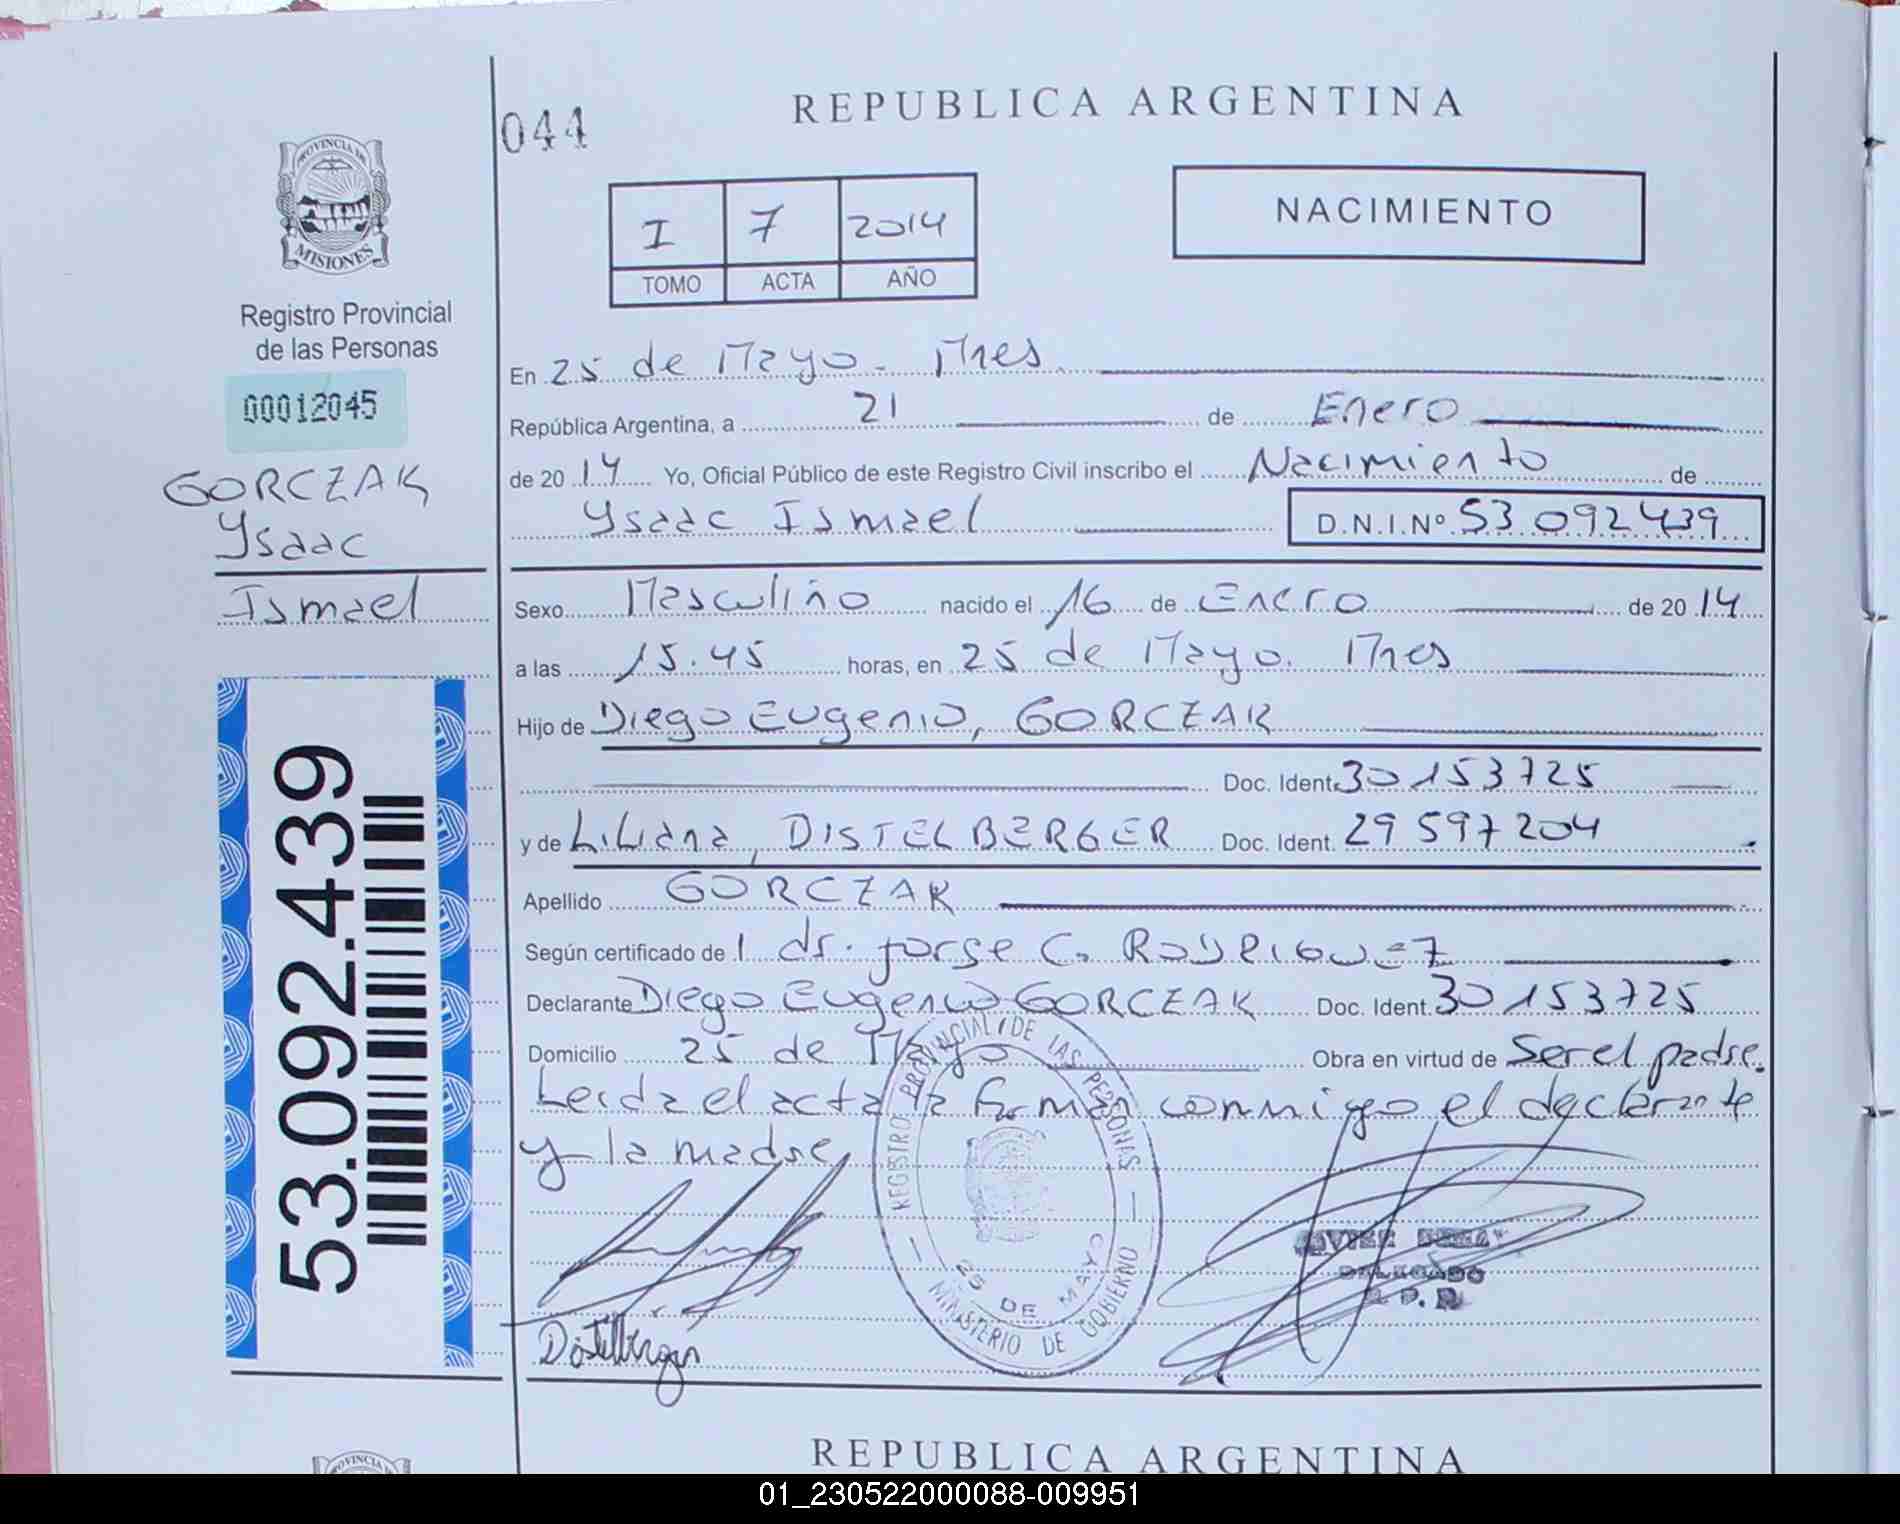 044
REPUBLICA ARGENTINA
PROVINCIA DE
MISIONES
Registro Provincial
de las Personas
00012045
GORCZAK
Ysaac
Ismael
53.092.439
I 7 2014
TOMO ACTA AÑO
NACIMIENTO
En 25 de Mayo. Mnes
República Argentina, a 21 de Enero
de 2014 Yo, Oficial Público de este Registro Civil inscribo el Nacimiento de
Ysaac Ismael D.N.I.Nº 53 092439
Sexo Masculino nacido el 16 de Enero de 2014
a las 15.45 horas, en 25 de Mayo. Mnes
Hijo de Diego Eugenio, GORCZAK
Doc. Ident. 30153725
y de Liliana, DISTELBERGER Doc. Ident. 29597204
Apellido GORCZAK
Según certificado de l dr. Jorge C. RODRIGUEZ
Declarante Diego Eugenio GORCZAK Doc. Ident. 30153725
Domicilio 25 de Mayo Obra en virtud de Ser el padre.
Leida el acta la firman conmigo el declarante
y la madre
REGISTRO PROVINCIAL DE LAS PERSONAS
25 DE MAYO
MINISTERIO DE GOBIERNO
DELEGADO
Distelberger
PROVINCIA DE
REPUBLICA ARGENTINA
01_230522000088-009951